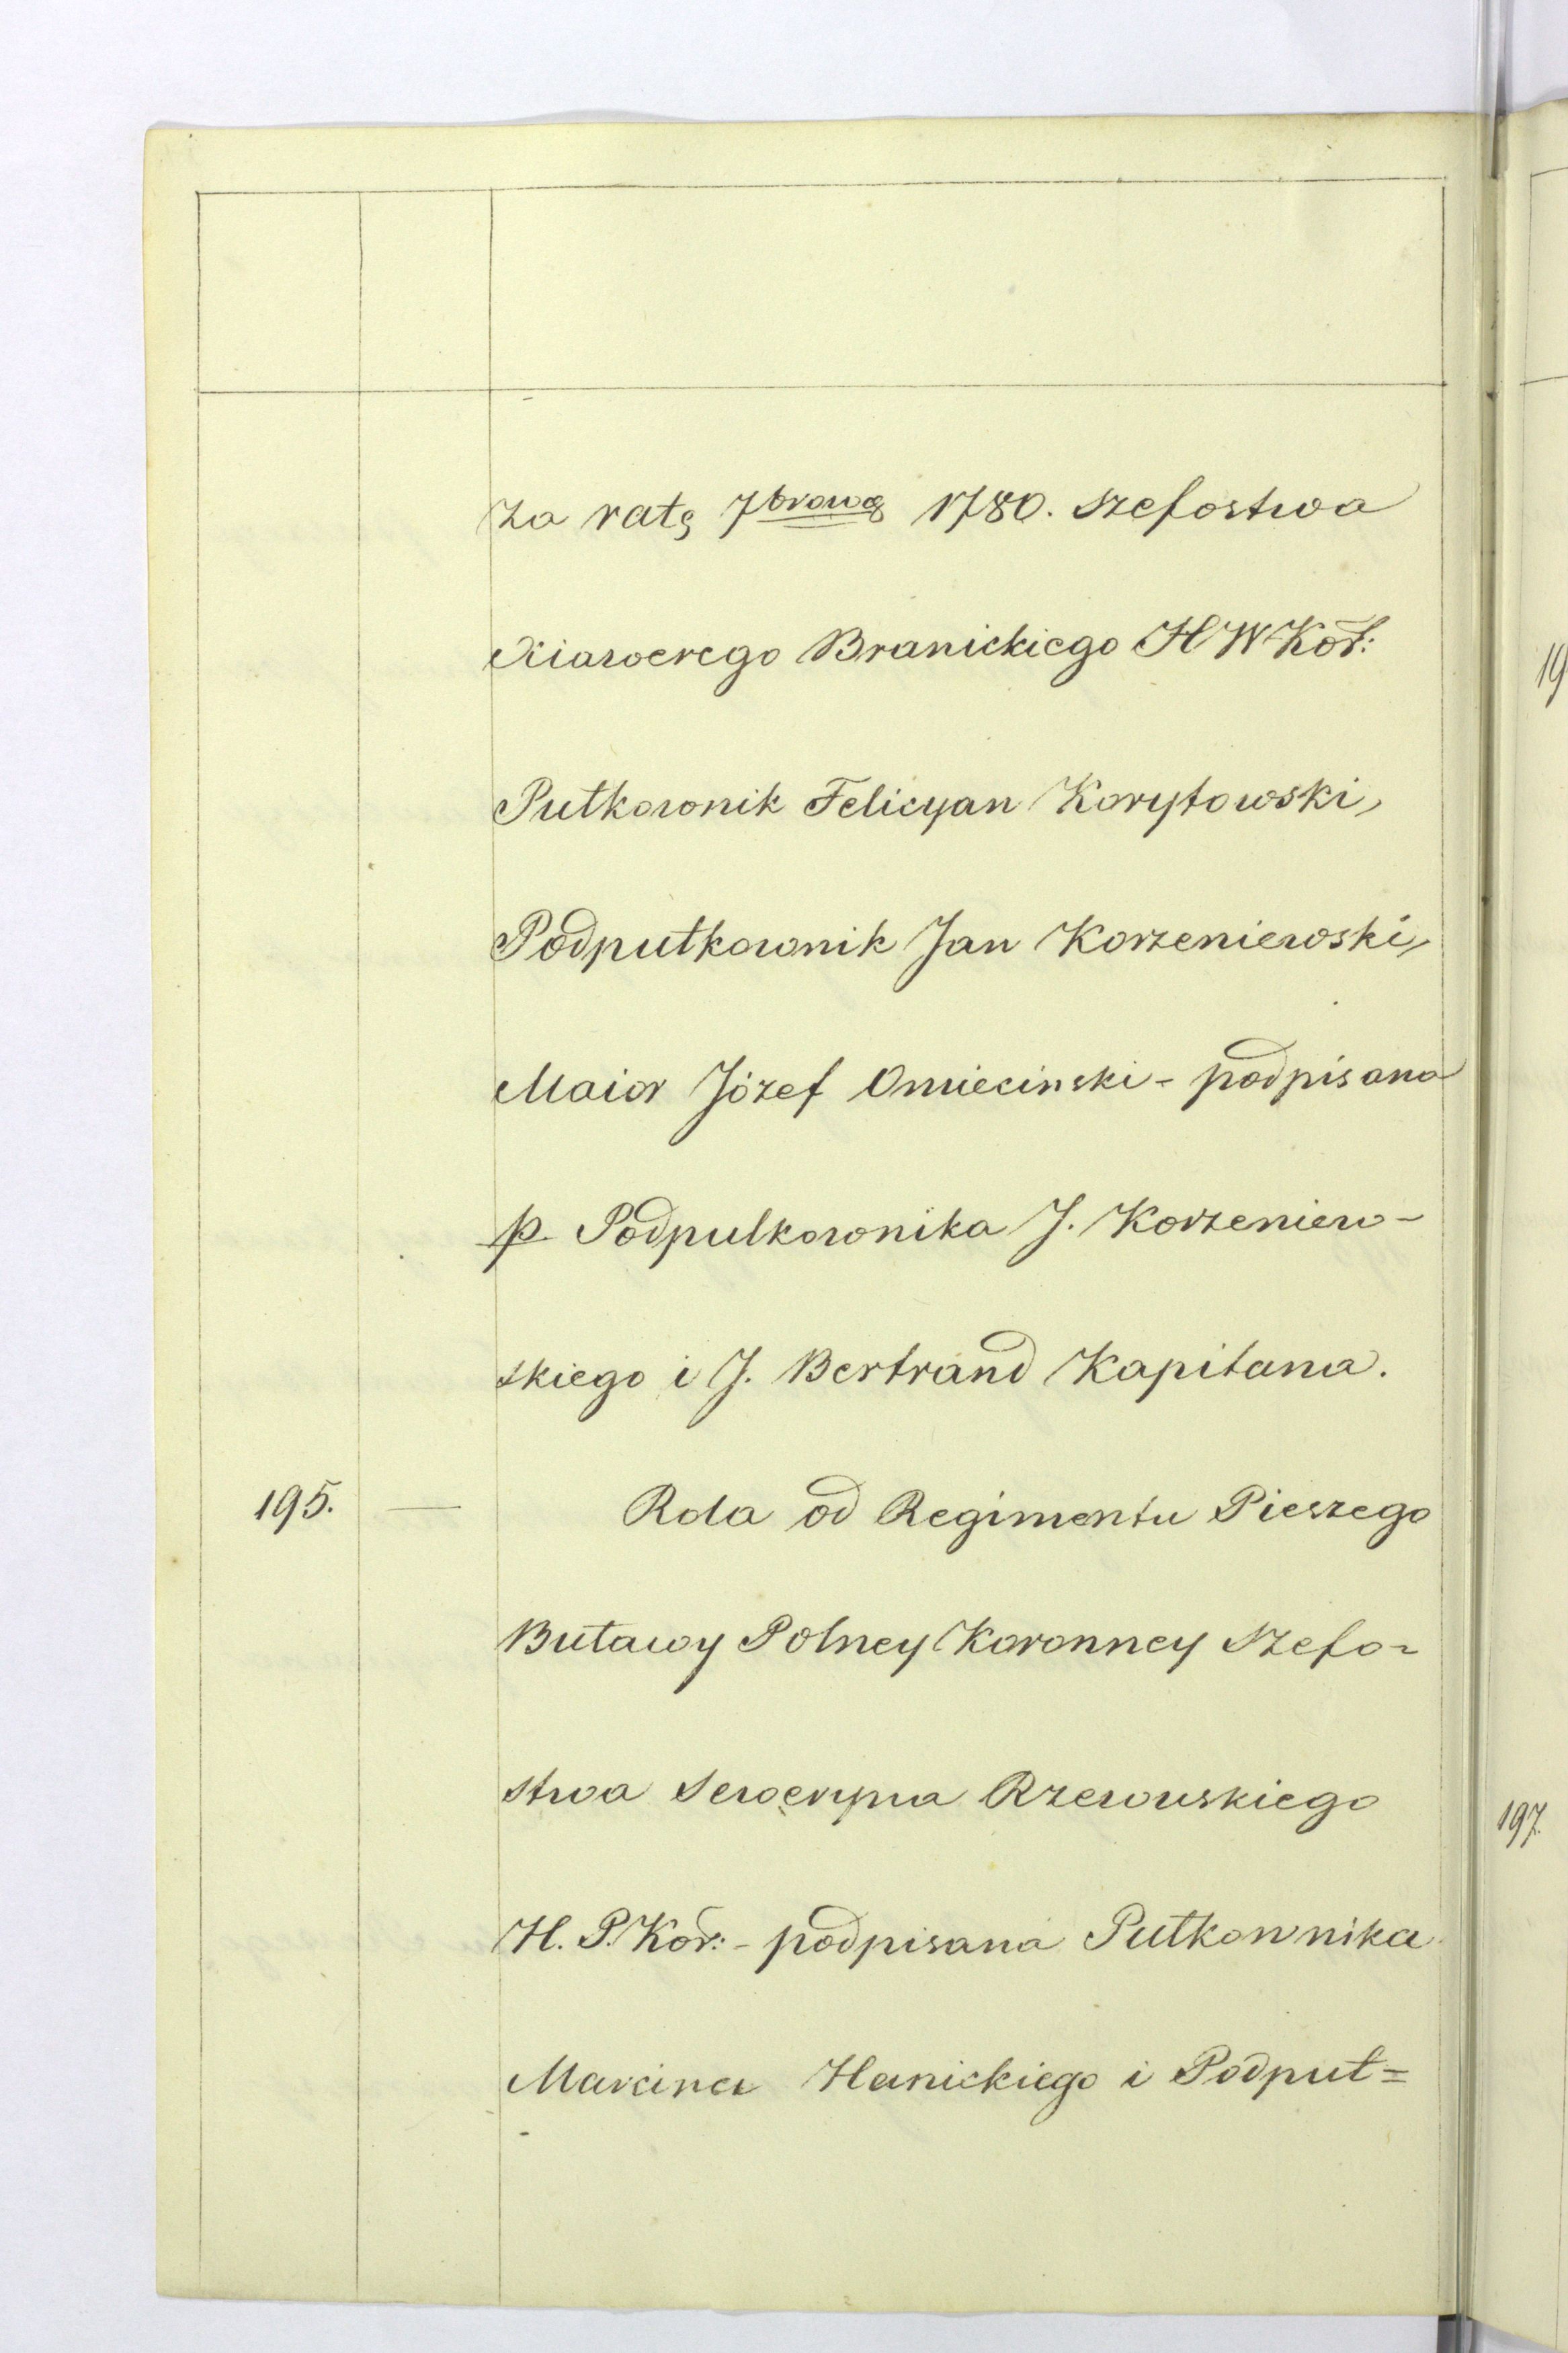 za ratę 7browę 1780. szefostwa
Xiawerego Branickiego H W Kor:
Pułkownik Felicyan Korytowski,
Podpułkownik Jan Korzeniewski,
Maior Józef Omiecinski - podpisana
p. Podpulkownika J. Korzeniew-
skiego i J. Bertrand Kapitana.
195. — Rola od Regimentu Pieszego
Buławy Polney Koronney Szefo-
stwa Seweryna Rzewuskiego
H. P. Kor: - podpisana Pułkownika
Marcina Hanickiego i Podpuł=
19
197.